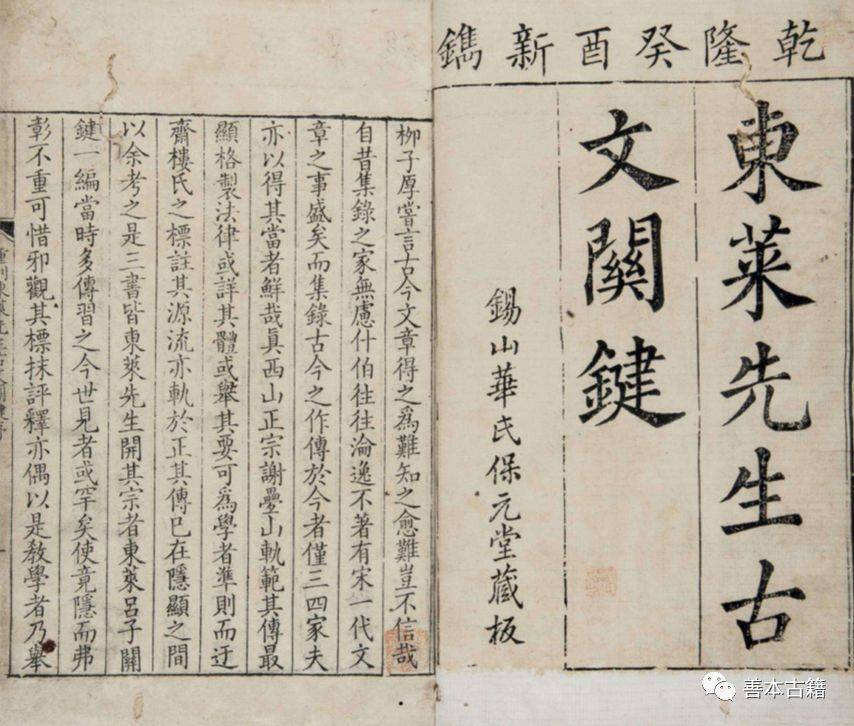 乾隆癸酉新鐫
東萊先生古
文關鍵
錫山華氏保元堂藏板
柳子厚嘗言古今文章得之爲難知之愈難豈不信哉
自昔集錄之家無慮什伯往往淪逸不著有宋一代文
章之事盛矣而集錄古今之作傳於今者僅三四家夫
亦以得其當者鮮哉眞西山正宗謝疊山軌範其傳最
顯格製法律或詳其體或舉其要可爲學者準則而迂
齋樓氏之標註其源流亦軌於正其傳已在隱顯之間
以余考之是三書皆東萊先生開其宗者東萊呂子關
鍵一編當時多傳習之今世見者或罕矣使竟隱而弗
彰不重可惜邪觀其標抹評釋亦偶以是教學者乃舉
善本古籍